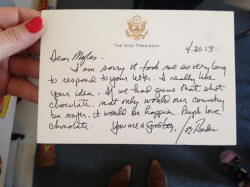 THE VICE PRESIDENT
4.30.13
Dear Myles.
I am sorry it took me so very long
to respond to your letter. I really like
your idea. If we had guns that shot
chocolate, not only would our country
be safer, it would be happier. People love
chocolate.
You are a good boy, Joe Biden